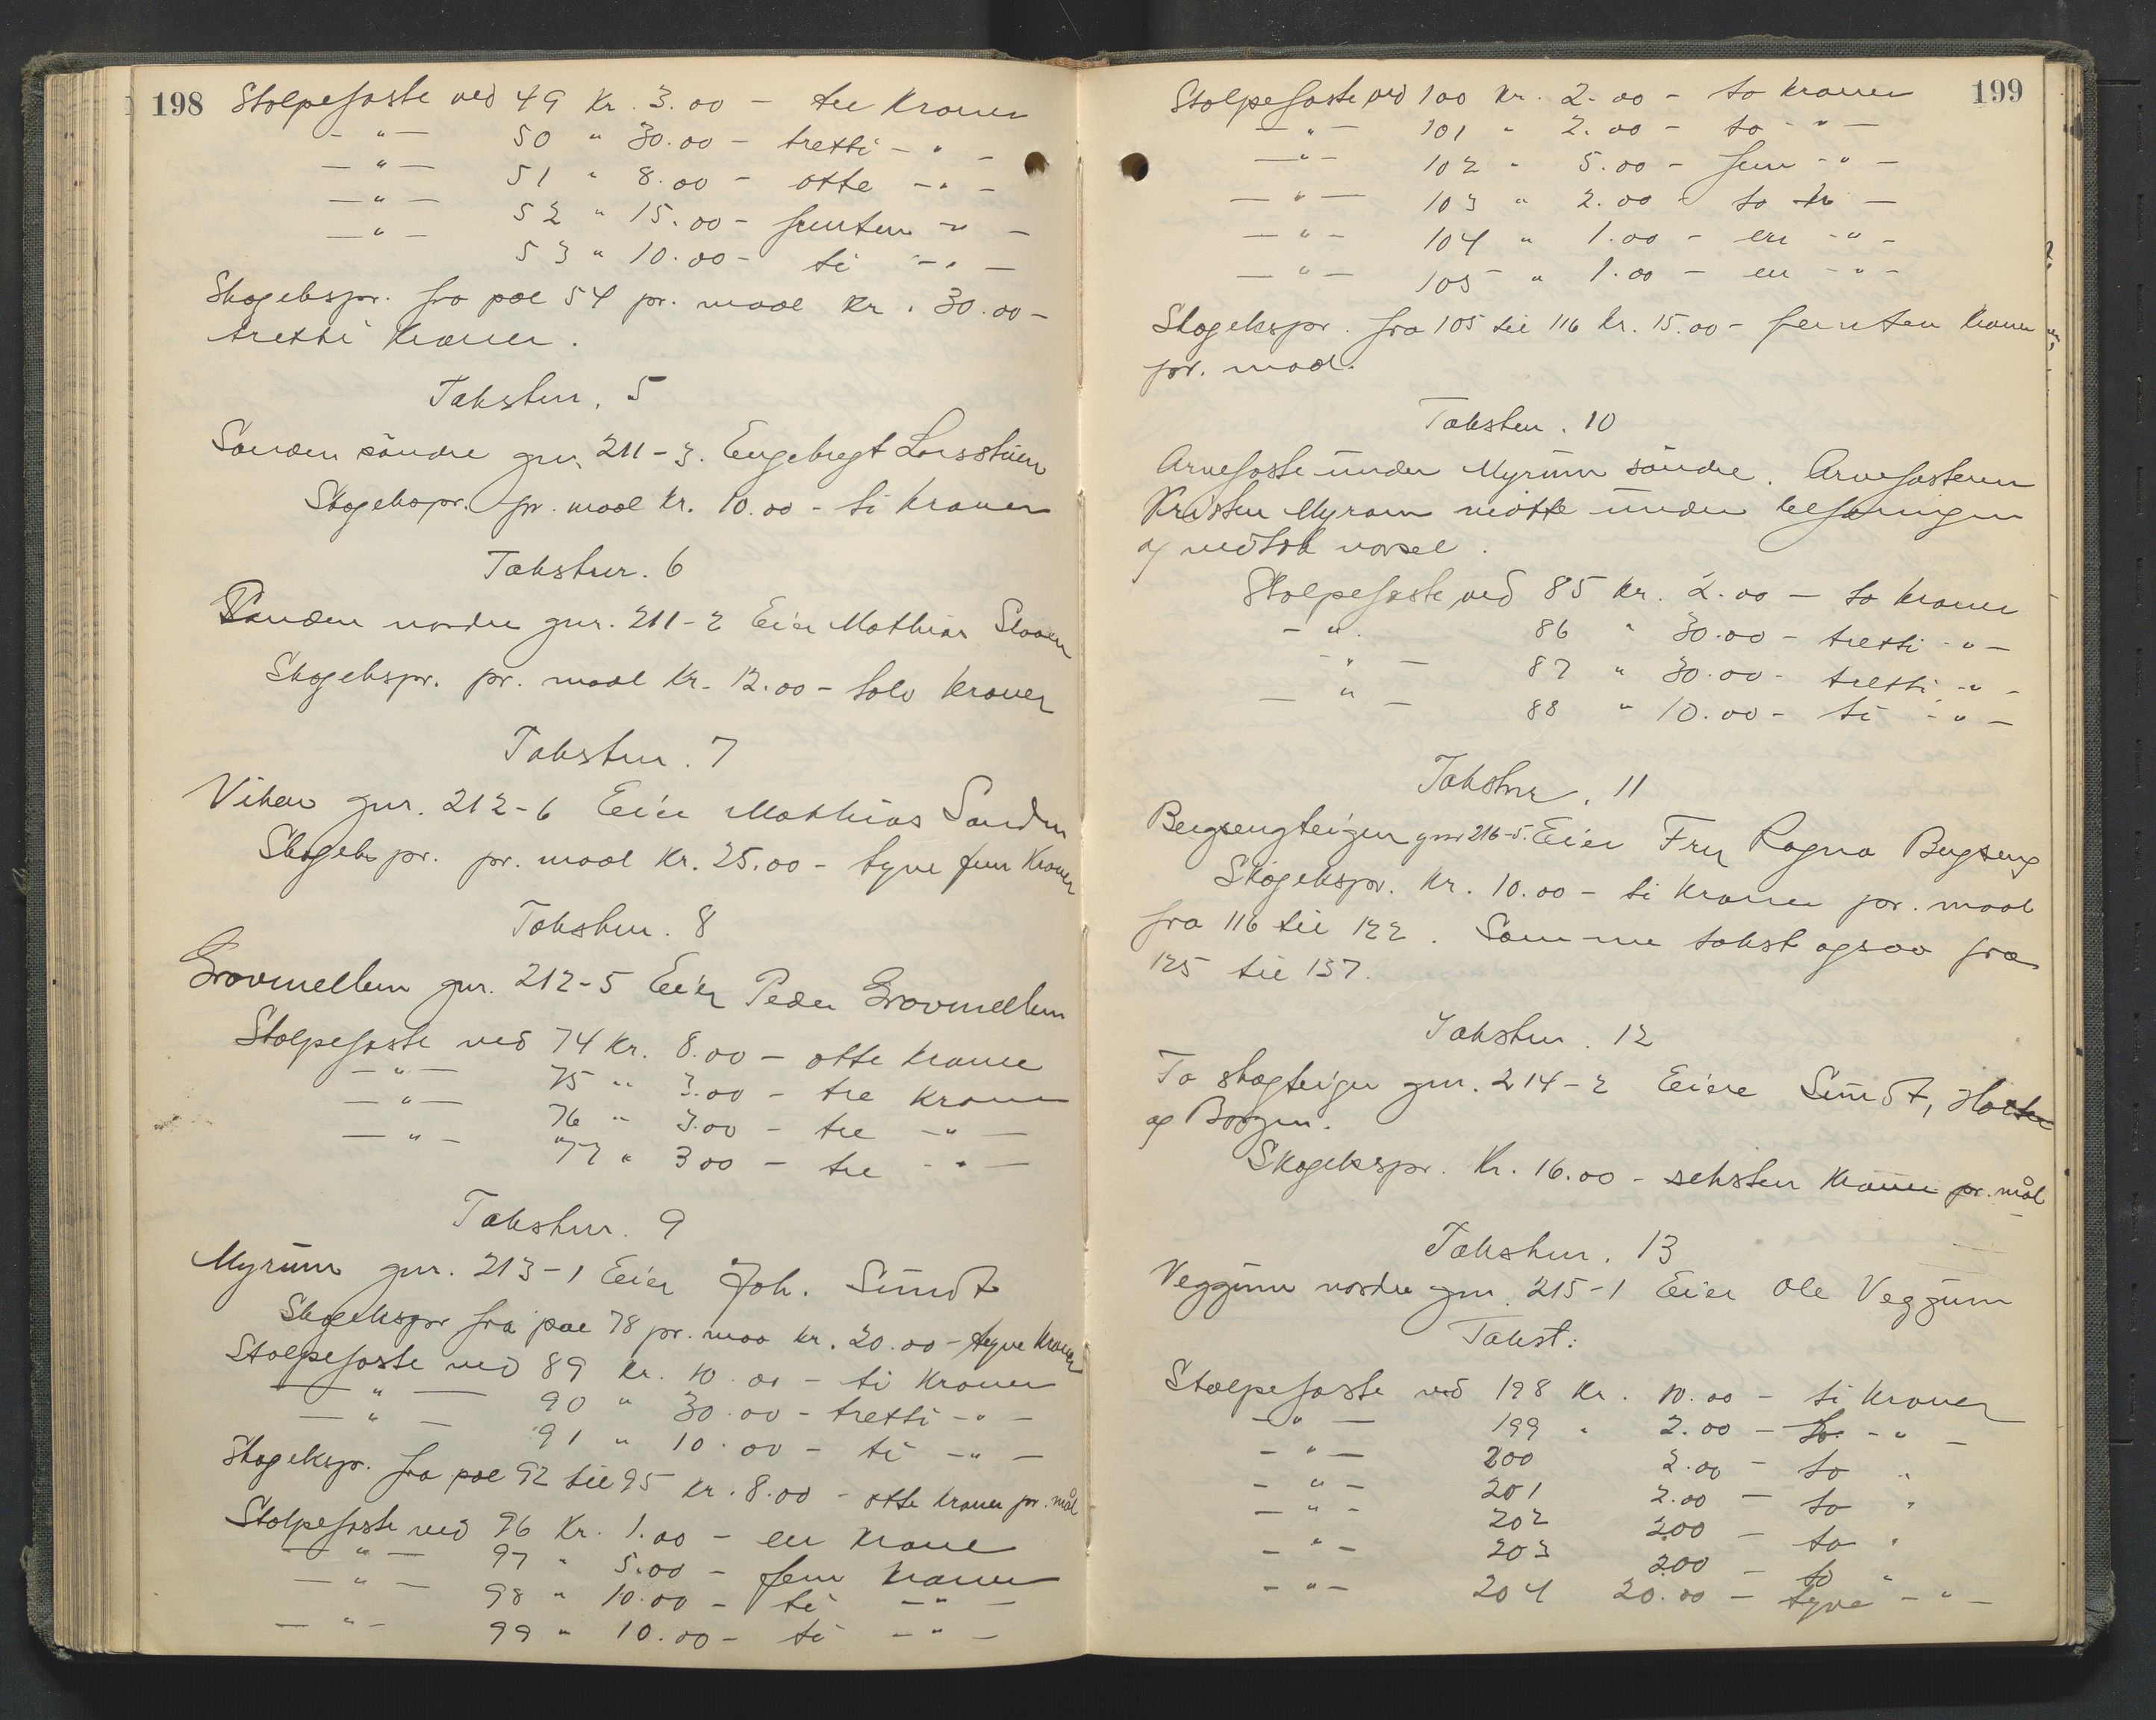 198
Stolpefaste ved 49 Kr. 3.00 - tre Kroner
- " - 50 " 30.00 - tretti - " -
- " - 51 " 8.00 - otte - " -
- " - 52 " 15.00 - femten - " -
- " - 53 " 10.00 - ti - " -
Skogekspr. fra pæl 54 pr. maal Kr. 30.00 -
tretti Kroner.
Takstnr. 5
Sanden søndre gnr. 211-3. Engebregt
Skogekspr. pr. maal Kr. 10.00 - ti Kroner
Takstnr. 6
Sanden nordre gnr. 211-2 Eier Mathias
Skogekspr. pr. maal Kr. 12.00 - tolv Kroner
Takstnr. 7
Viken gnr. 212-6 Eier Mathias Sanden
Skogekspr. pr. maal Kr. 25.00 - tyve fem Kroner
Takstnr. 8
Grovmellem gnr. 212-5 Eier Peder Grovmellem
Stolpefaste ved 74 Kr. 8.00 - otte Kroner
- " - 75 " 3.00 - tre Kroner
- " - 76 " 3.00 - tre - " -
- " - 77 " 3 00 - tre - " -
Takstnr. 9
Myrum gnr. 213-1 Eier Joh. Simdt
Skogekspr fra pæl 78 pr. maa kr. 20.00 - tyve Kroner
Stolpefaste ved 89 Kr. 10.00 - ti Kroner
- " - 90 " 30.00 - tretti - " -
- " - 91 " 10.00 - ti - " -
Skogekspr. fra pæl 92 til 95 Kr. 8.00 - otte kroner pr. mål
Stolpefaste ved 96 Kr. 1.00 - en Krone
- " - 97 " 5.00 - fem Kroner
- " - 98 " 10.00 - ti - " -
- " - 99 " 10.00 - ti - " -
199
Stolpefaste ved 100 Kr. 2.00 - to Kroner
- " - 101 " 2.00 - to - " -
- " - 102 " 5.00 - fem - " -
- " - 103 " 2.00 - to kr -
- " - 104 " 1.00 - en - " -
- " - 105 " 1.00 - en - " -
Skogekspr. fra 105 til 116 Kr. 15.00 - femten Kroner
pr. maal.
Takstnr. 10
Arvefaste under Myrum søndre. Arvefasteren
Kristen Myrom møtte under befaringen
og vedtok varsel.
Stolpefaste ved 85 Kr. 2.00 - to Kroner
- " - 86 " 30.00 - tretti - " -
- " - 87 " 30.00 - tretti - " -
- " - 88 " 10.00 - ti - " -
Takstnr. 11
Bergsengteigen gnr 216-5. Eier Fru Ragna Bergseng
Skogekspr. Kr. 10.00 - ti Kroner pr. maal
fra 116 til 122. Samme takst ogsaa fra
125 til 137.
Takstnr. 12
To skogteiger gnr. 214-2 Eiere Simdt,
og Borgen.
Skogekspr. Kr. 16.00 - seksten Kroner pr. mål
Takstnr. 13
Veggum nordre gnr. 215-1 Eier Ole Veggum
Takst:
Stolpefaste ved 198 Kr. 10.00 - ti Kroner
- " - 199 " 2.00 - to - " -
- " - 200 2.00 - to "
- " - 201 2.00 - to "
- " - 202 200 - to "
- " - 203 200 - to "
- " - 204 20.00 - tyve - " -